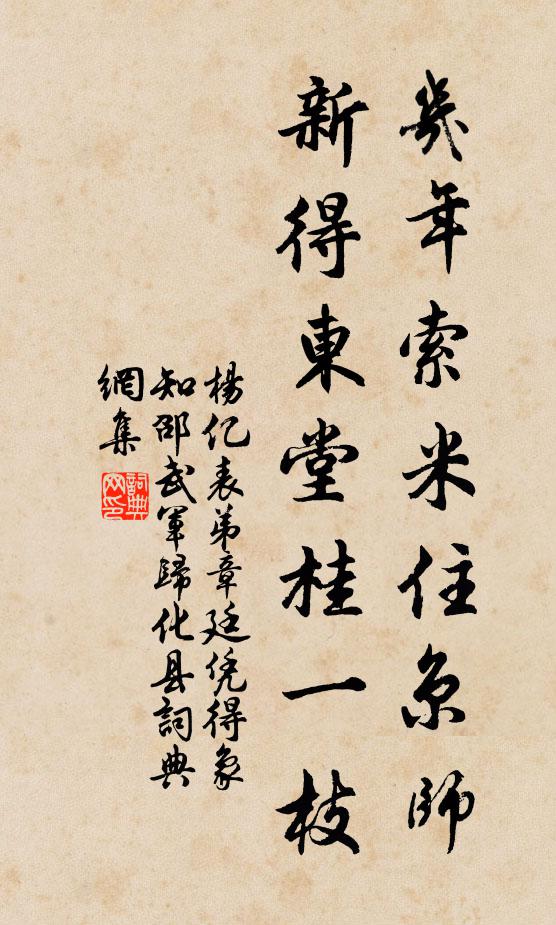 幾年索米住京師
新得東堂桂一枝
楊亿表弟章廷凭得象
知邵武軍歸化县詞典
網集
詞典
网印